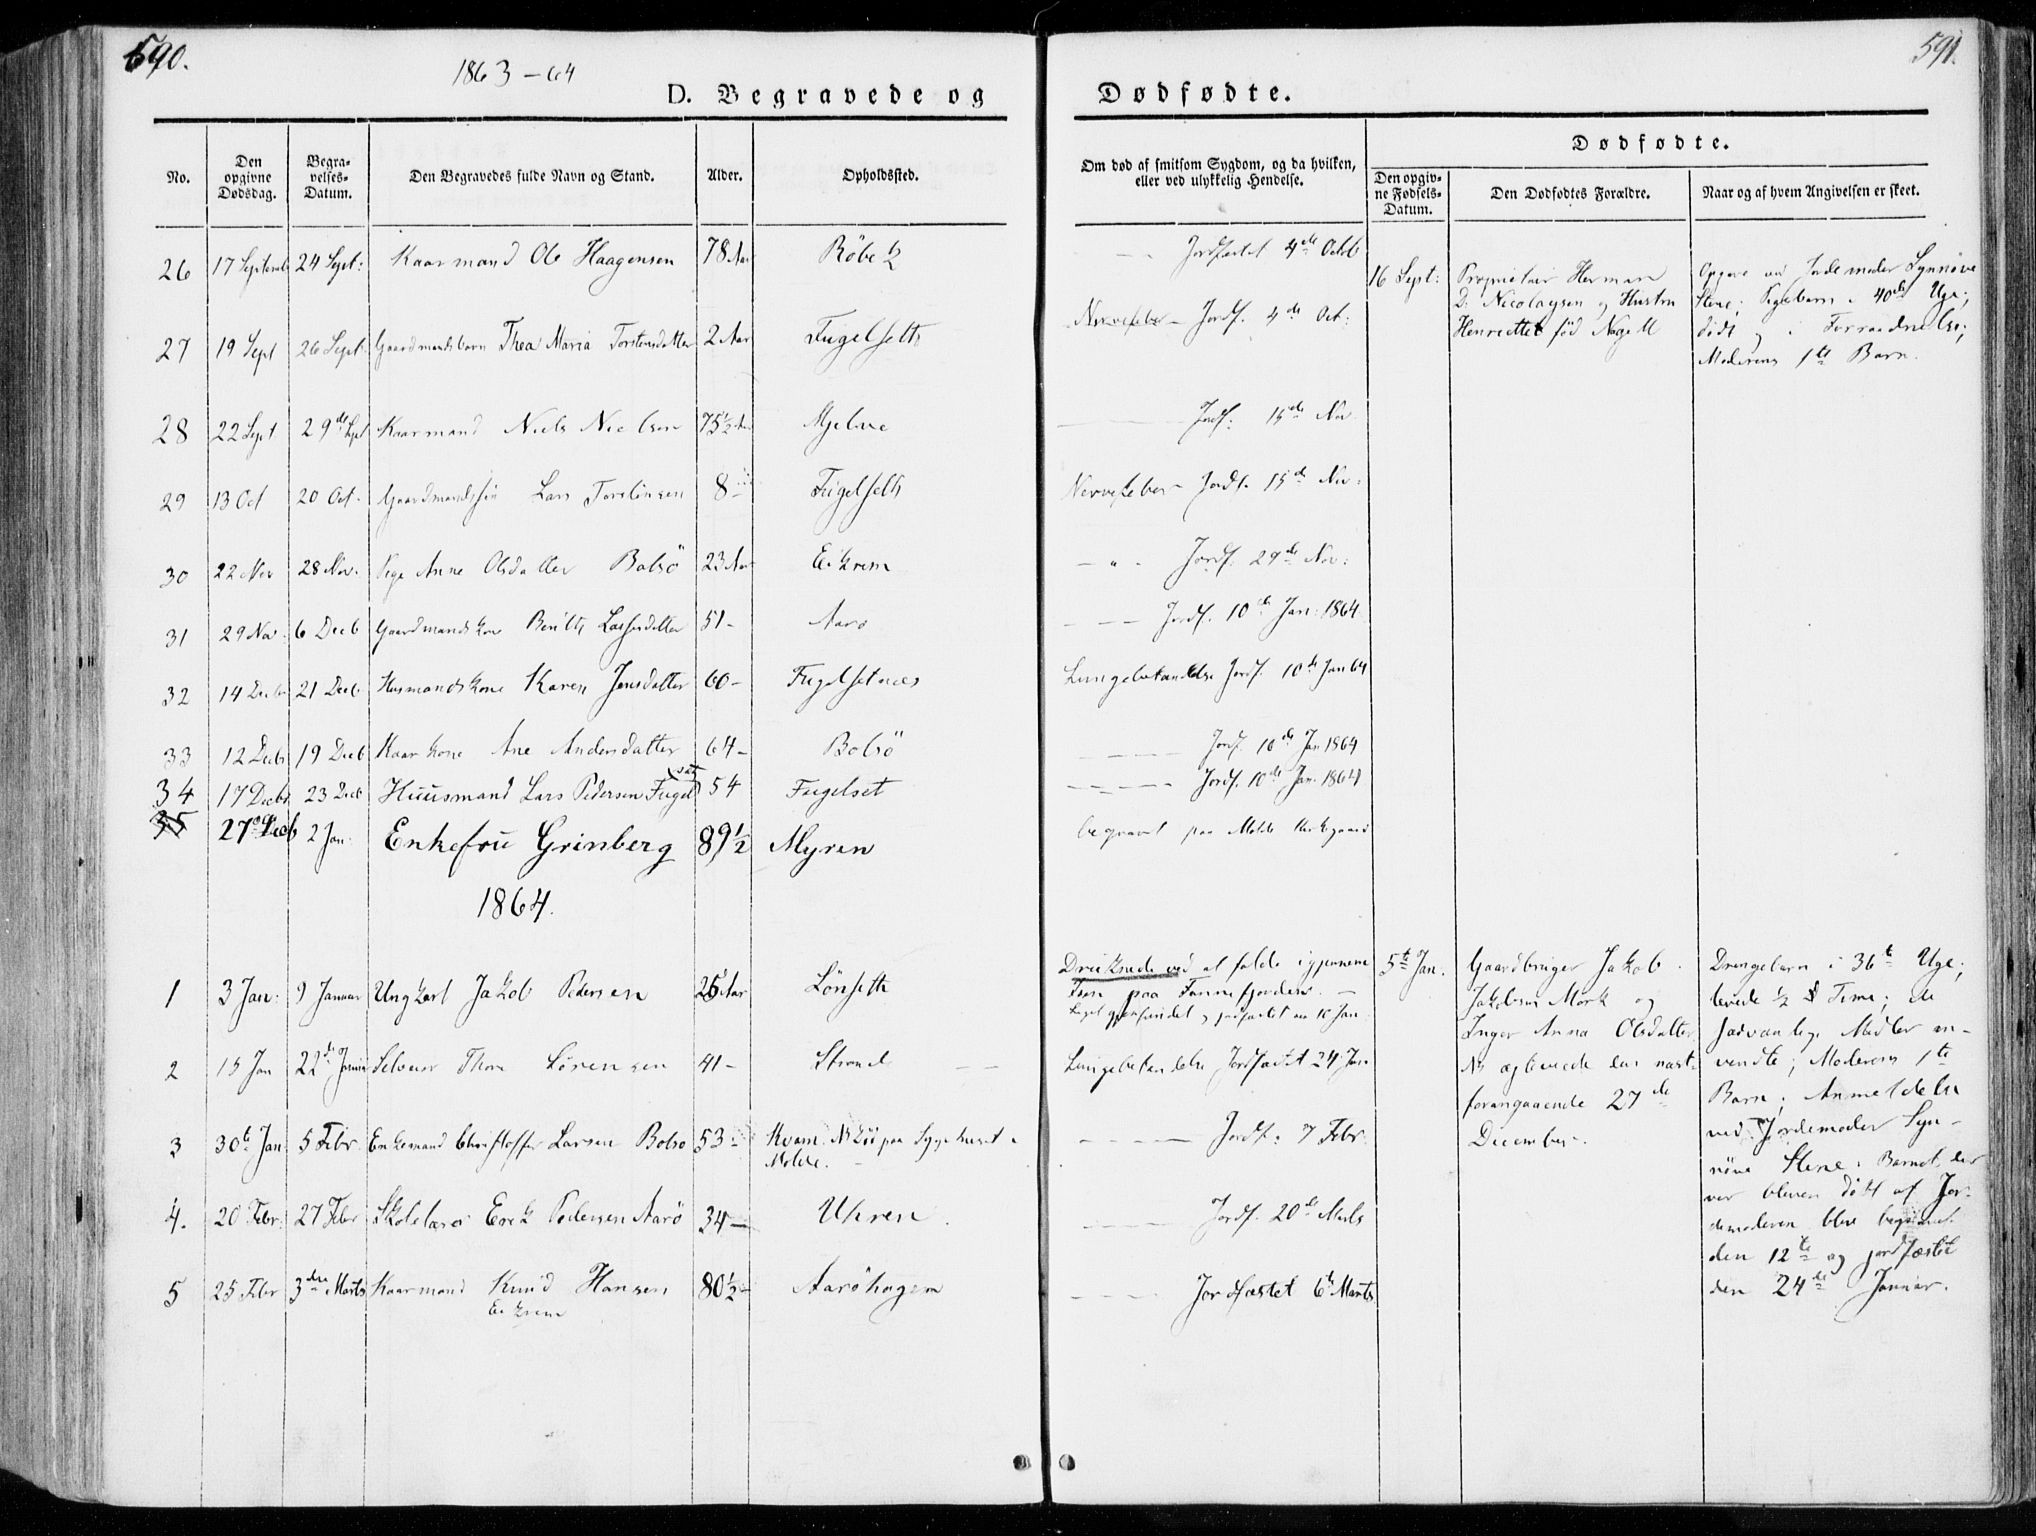 590.
591.
1863-64
D. Begravede og
Dødfødte.
No.
Den opgivne Dødsdag.
Begra-velses-Datum.
Den Begravedes fulde Navn og Stand.
Alder.
Opholdssted.
Om død af smitsom Sygdom, og da hvilken,
eller ved ulykkelig Hendelse.
Dødfødte.
Den opgiv-ne Fødsels-Datum.
Den Dødfødtes Forældre.
Naar og af hvem Angivelsen er skeet.
26 17 Septemb 24 Sept: Kaarmand Ole Haagensen 78 Aar Röbek Jordfæstet 4de Octob
27 19 Sept 26 Sept. Gaardmandsbarn Thea Maria Torstensdatter 2 Aar Fugelseth Nervefeber - Jordf. 4de Oct:
28 22 Sept 29de Sept Kaarmand Niels Nielsen 75½ Aar Mjelve Jordf: 15de Nov.
29 13 Oct 20 Oct. Gaardmandssön Lars Torstensen 8 Fugelseth Nervefeber Jordf. 15de Nov:
30 22 Nov 28 Nov. Pige Anne Olsdatter Bolsö 23 Aar Eikrem Jordf. 29de Nov:
31 29 Nov. 6 Decb Gaardmandskone Berith Lassesdatter 51 - Aarö Jordf. 10de Jan: 1864
32 14 Decbr 21 Decb Husmandskone Karen Jensdatter 60 - Fugelsetnæs Lungebetændelse Jordf. 10de Jan 64
33 12 Decbr 19 Decb Kaarkone Ane Andersdatter 64 - Bolsö Jordf. 10de Jan 1864
34 17 Decbr 23 Decb Huusmand Lars Pedersen Fugelset 54 Fugelset Jordf. 10de Jan. 1864
35 27de Decb 2 Jan: Enkefru Grinberg 89½ Myren begravet paa Molde Kirkegaard
16 Sept: Proprietair Herman
D: Nicolaysen og Hustru
Henriette född Nagell
Opgave ved Jordemoder Synnöve
Stene; Pigebarn i 40de Uge;
dödt og i Forraadnelse;
Moderens 1te Barn.
1864.
1 3 Jan: 9 Januar Ungkarl Jakob Pedersen 26 Aar Lönseth
Druknede ved at falde igjennem
Isen paa Fannefjorden. -
Liget gjenfundet og jordfæstet 10 Jan:
2 15 Jan 22de Januar Selveier Thore Sörensen 41 - Strande Lungebetændelse Jordfæstet 24 Jan
3 30te Jan: 5 Febr Enkemand Christoffer Larsen Bolsö 53 - Kvam. NB Död paa Sygehuset i
Molde. - Jordf: 7 Febr.
4. 20 Febr: 27 Febr Skolelærer Erik Pedersen Aarö 34 - Uhren. Jordf. 20de Marts
5 25 Febr 3die Marts Kaarmand Knud Hansen 80½ Aaröhagen Jordfæstet 6te Marts
Eikrem
5te Jan. Gaardbruger Jakob
Jakobsen Mork og
Inger Anna Olsdatter
NB ægteviede den næst-
forangaaende 27de
December.
Drengebarn i 36te Uge;
levede ½ Time; de
sædvanlige Midler an-
vendte; Moderens 1te
Barn; Anmeldelse
ved Jordemoder Syn-
növe Stene; Barnet, der
var bleven döbt af Jor-
demoderen, blev begravet
den 12te og jordfæstet
den 24de Januar.